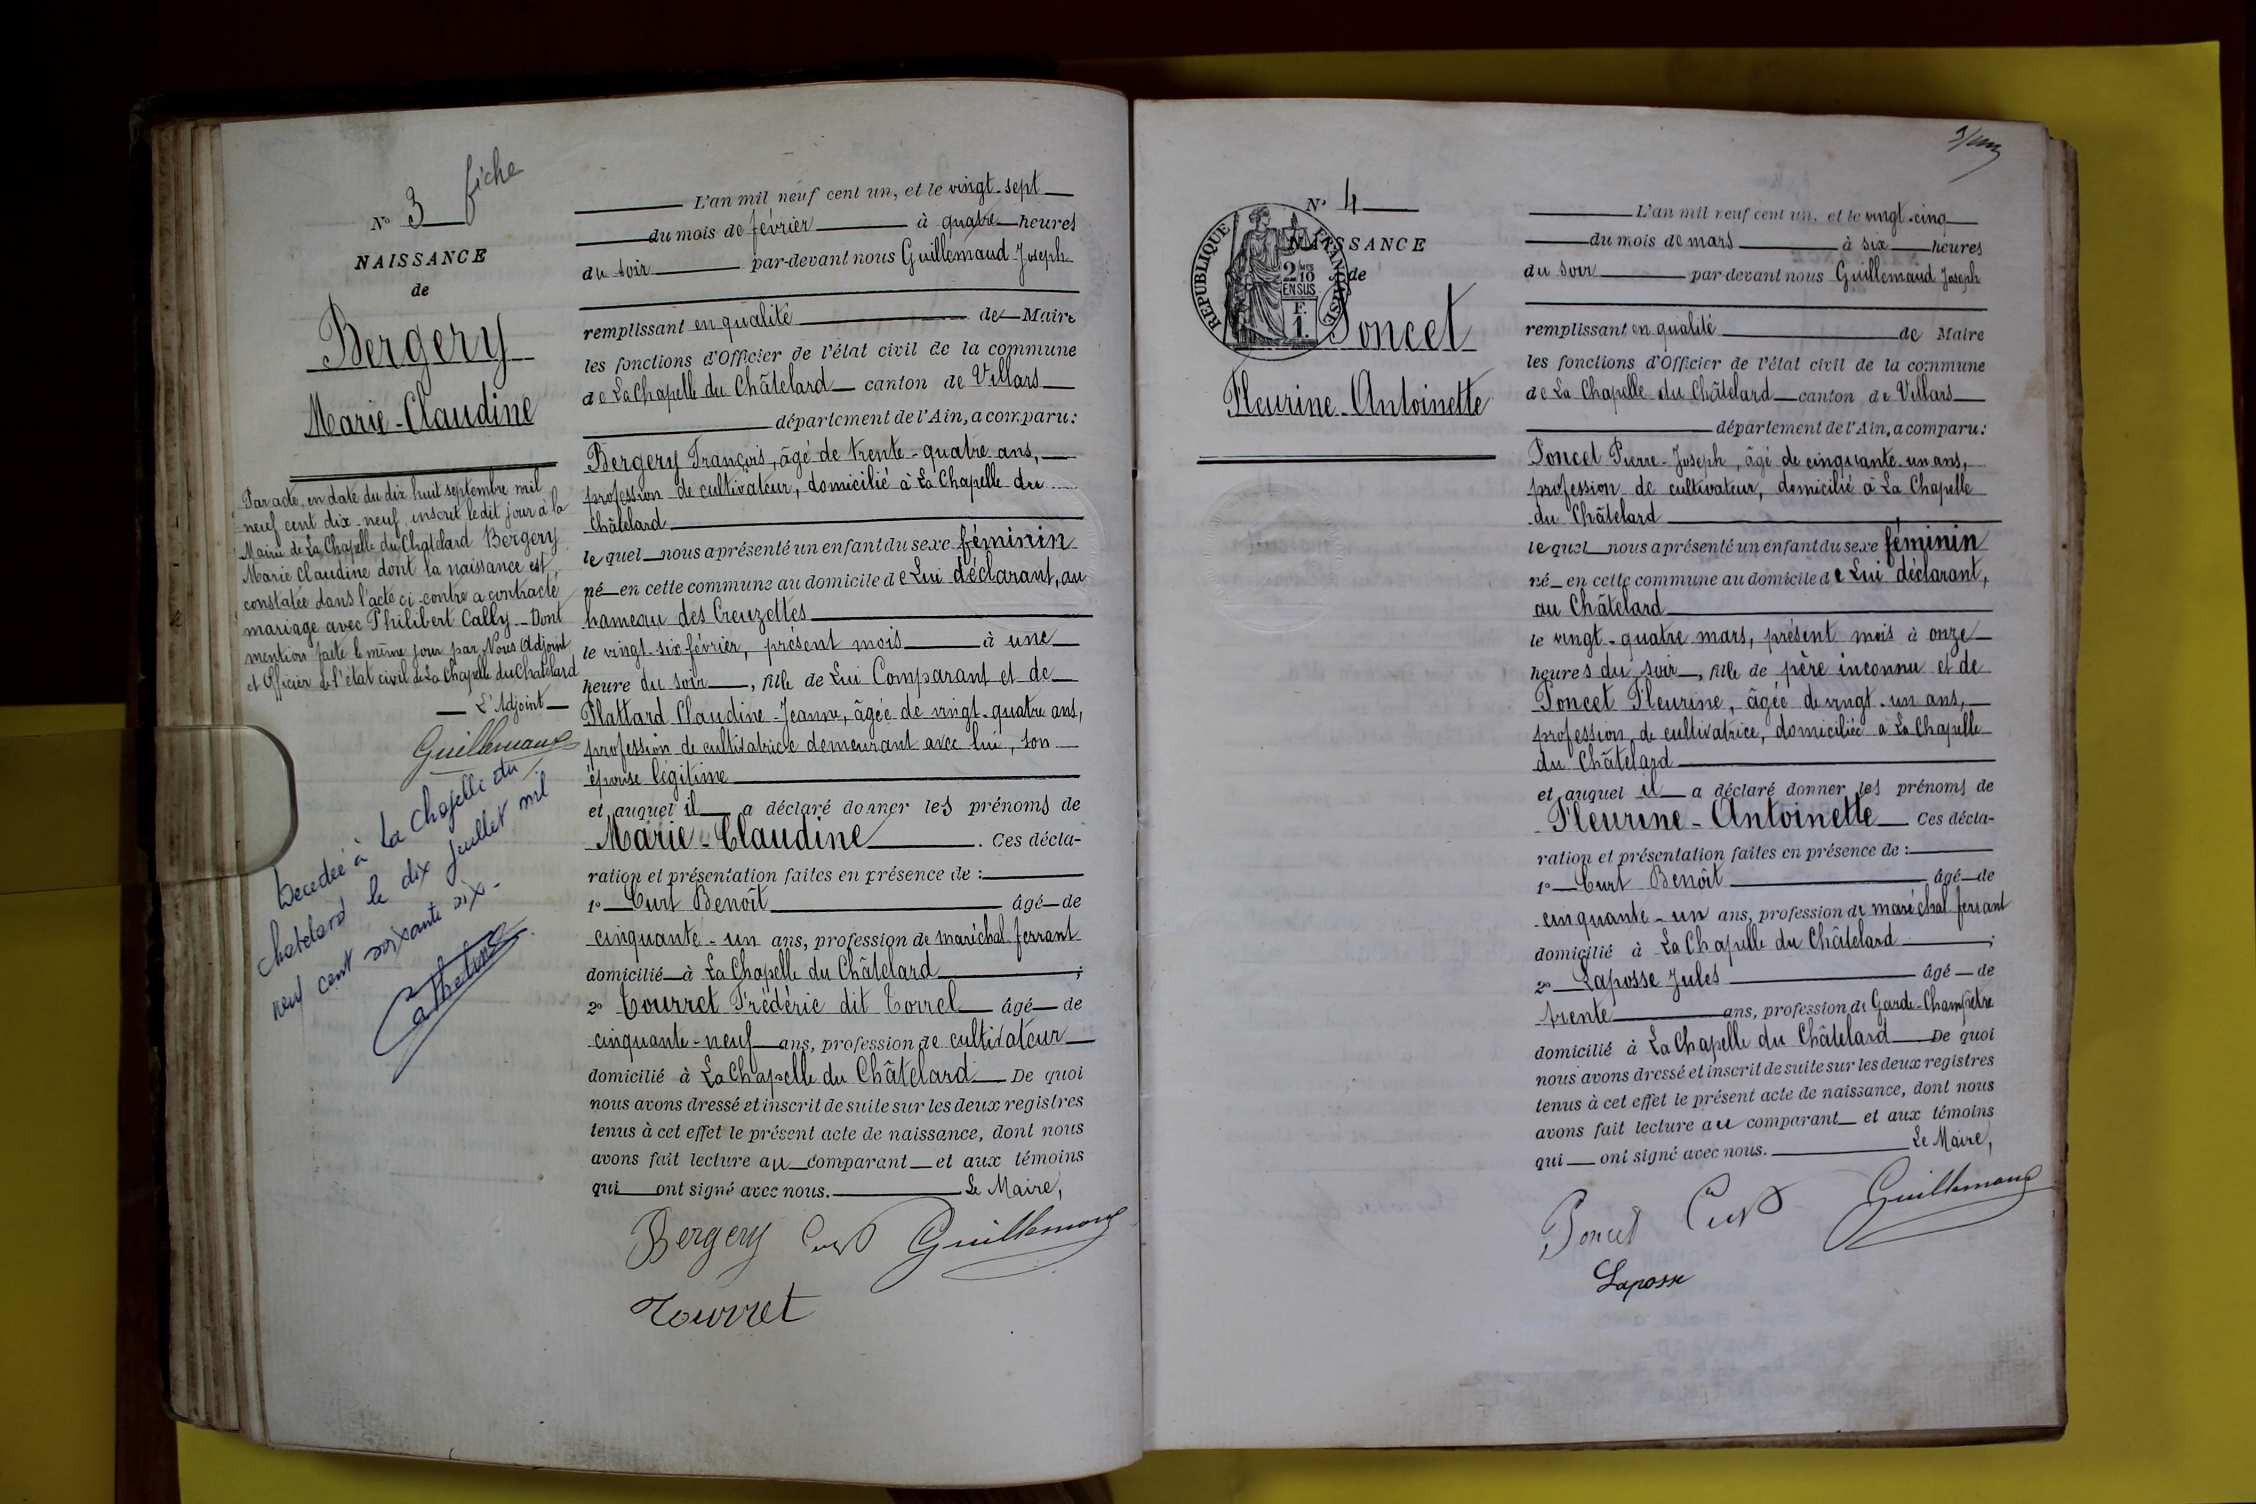 fiche
N° 3
NAISSANCE
de
Bergery
Marie-Claudine
Par acte, en date du dix huit septembre mil
neuf cent dix-neuf, inscrit le dit jour à la
Mairie de La Chapelle du Chatelard Bergery
Marie Claudine dont la naissance est
constatée dans l'acte ci-contre a contracté
mariage avec Philibert Cally - Dont
mention faite le même jour par Nous Adjoint
et Officier de l'état civil de La Chapelle du Chatelard
L'Adjoint
Guillemaud
Decedée à La Chapelle du
Chatelard le dix juillet mil
neuf cent soixante six -
L'an mil neuf cent un, et le vingt-sept
du mois de février à quatre heures
du soir par-devant nous Guillemaud Joseph
remplissant en qualité de Maire
les fonctions d'Officier de l'état civil de la commune
de La Chapelle du Châtelard canton de Villars
département de l'Ain, a comparu:
Bergery François, âgé de trente-quatre ans,
profession de cultivateur, domicilié à La Chapelle du
Châtelard
lequel nous a présenté un enfant du sexe féminin
né en cette commune au domicile de Lui déclarant, au
hameau des Creuzettes
le vingt-six février, présent mois à une
heure du soir, fille de Lui Comparant et de
Plattard Claudine-Jeanne, âgée de vingt-quatre ans,
profession de cultivatrice demeurant avec lui, son
épouse légitime
et auquel il a déclaré donner les prénoms de
Marie-Claudine. Ces décla-
ration et présentation faites en présence de :
1° Curt Benoît âgé de
cinquante-un ans, profession de maréchal ferrant
domicilié à La Chapelle du Châtelard ;
2° Tourret Frédéric dit Torrel âgé de
cinquante-neuf ans, profession de cultivateur
domicilié à La Chapelle du Châtelard De quoi
nous avons dressé et inscrit de suite sur les deux registres
tenus à cet effet le présent acte de naissance, dont nous
avons fait lecture au comparant et aux témoins
qui ont signé avec nous. Le Maire,
Bergery Curt Guillemaud
Tourret
N° 4
NAISSANCE
de
REPUBLIQUE FRANÇAISE
2/10
EN SUS
F.
1.
Poncet
Fleurine-Antoinette
L'an mil neuf cent un, et le vingt-cinq
du mois de mars à six heures
du soir par-devant nous Guillemaud Joseph
remplissant en qualité de Maire
les fonctions d'Officier de l'état civil de la commune
de La Chapelle du Châtelard canton de Villars
département de l'Ain, a comparu:
Poncet Pierre-Joseph, âgé de cinquante-un ans,
profession de cultivateur, domicilié à La Chapelle
du Châtelard
lequel nous a présenté un enfant du sexe féminin
né en cette commune au domicile de Lui déclarant,
au Châtelard
le vingt-quatre mars, présent mois à onze
heures du soir, fille de père inconnu et de
Poncet Fleurine, âgée de vingt-un ans,
profession de cultivatrice, domiciliée à La Chapelle
du Châtelard
et auquel il a déclaré donner les prénoms de
Fleurine-Antoinette Ces décla-
ration et présentation faites en présence de :
1° Curt Benoît âgé de
cinquante-un ans, profession de maréchal ferrant
domicilié à La Chapelle du Châtelard ;
2° Laposse Jules âgé de
trente ans, profession de Garde-Champêtre
domicilié à La Chapelle du Châtelard De quoi
nous avons dressé et inscrit de suite sur les deux registres
tenus à cet effet le présent acte de naissance, dont nous
avons fait lecture au comparant et aux témoins
qui ont signé avec nous. Le Maire,
Poncet Curt Guillemaud
Laposse